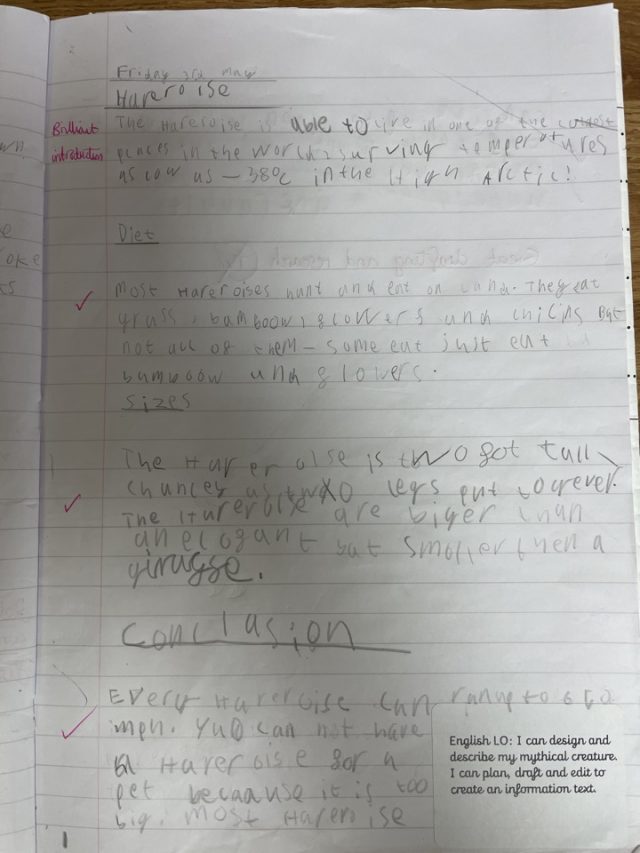 Friday 3rd may
Hareroise
Brilliant introduction
The Hareroise is able to live in one of the coldest
places in the world surving temperatures
as low as -38°c in the High Arctic!
Diet
Most Hareroises hunt and eat on land. They eat
grass, bamboow, flowers and chicins But
not all of them - some eat just eat
bamboow and flowers.
Sizes
The Hareroise is two fot tall
as two legs put togever.
The Hareroise are biger than
an elogant but smaller then a
giraffe.
Conclusion
Every Hareroise can run up to
mph. You can not have
a Hareroise for a
pet becaause it is too
big. Most Hareroise
English LO: I can design and
describe my mythical creature.
I can plan, draft and edit to
create an information text.